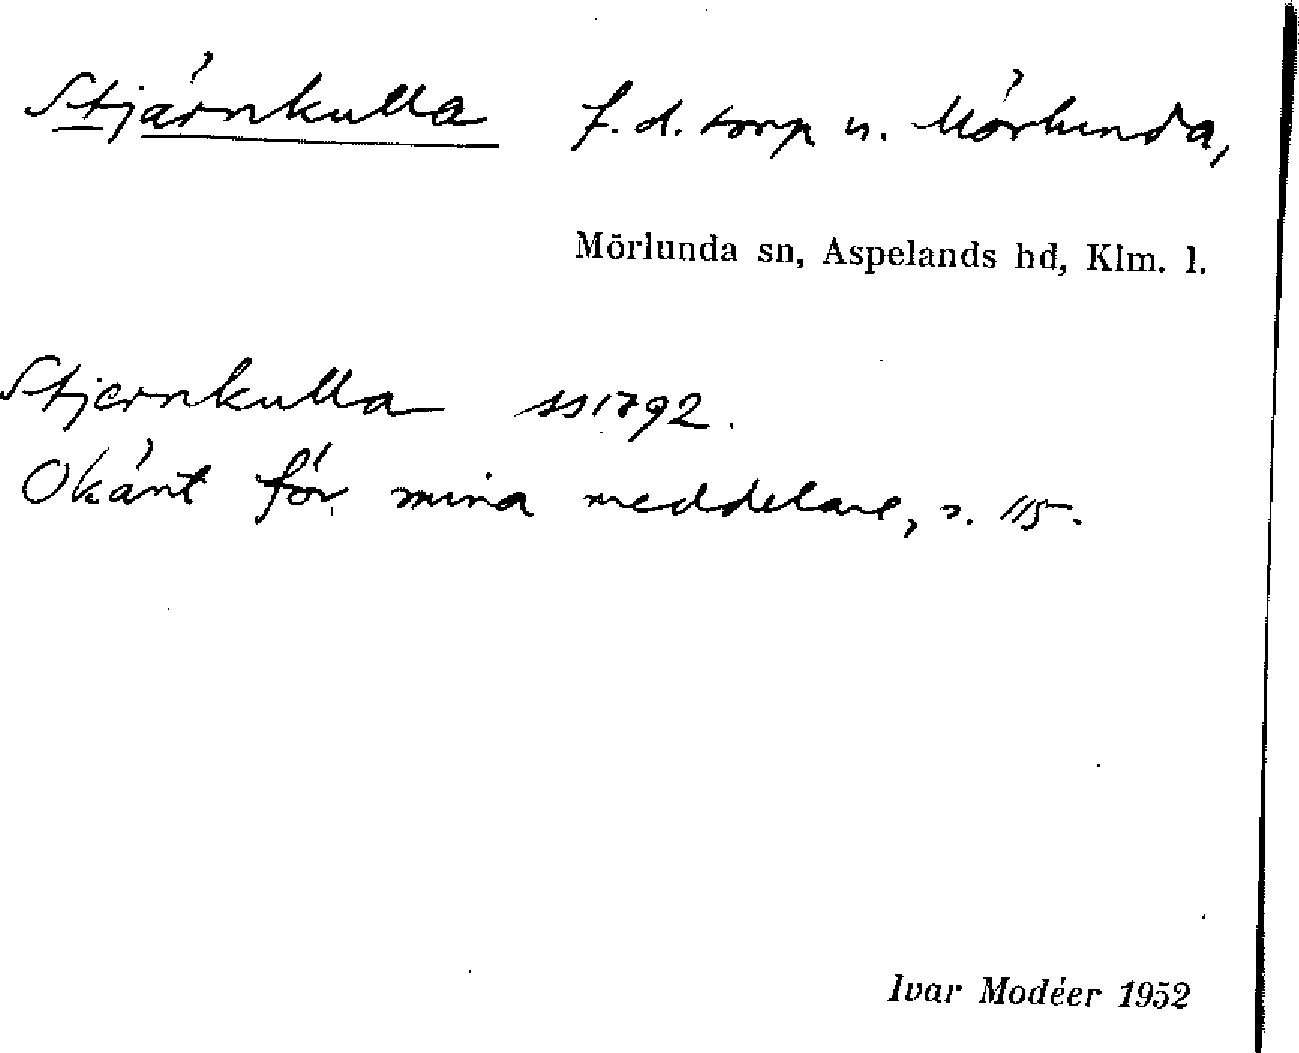 Stjärnkulla f.d. torp u. Mörlunda,
Mörlunda sn, Aspelands hd, Klm. l.
Stjernkulla ss 1792.
Okänt för mina meddelare, s. 115.
Ivar Modéer 1952